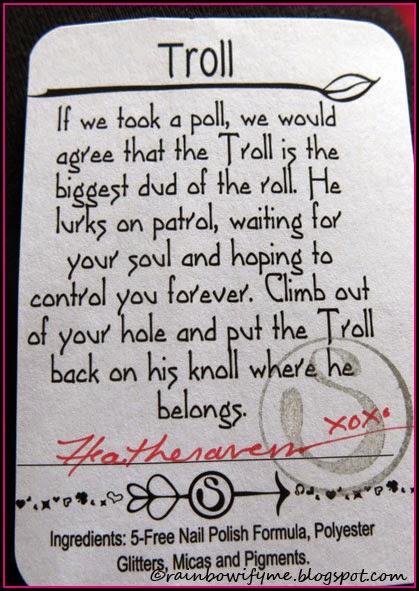 Troll
If we took a poll, we would
agree that the Troll is the
biggest dud of the roll. He
lurks on patrol, waiting for
your soul and hoping to
control you forever. Climb out
of your hole and put the Troll
back on his knoll where he
belongs.
xoxo
Heatheraven
S
S
Ingredients: 5-Free Nail Polish Formula, Polyester
Glitters, Micas and Pigments.
©rainbowifyme.blogspot.com